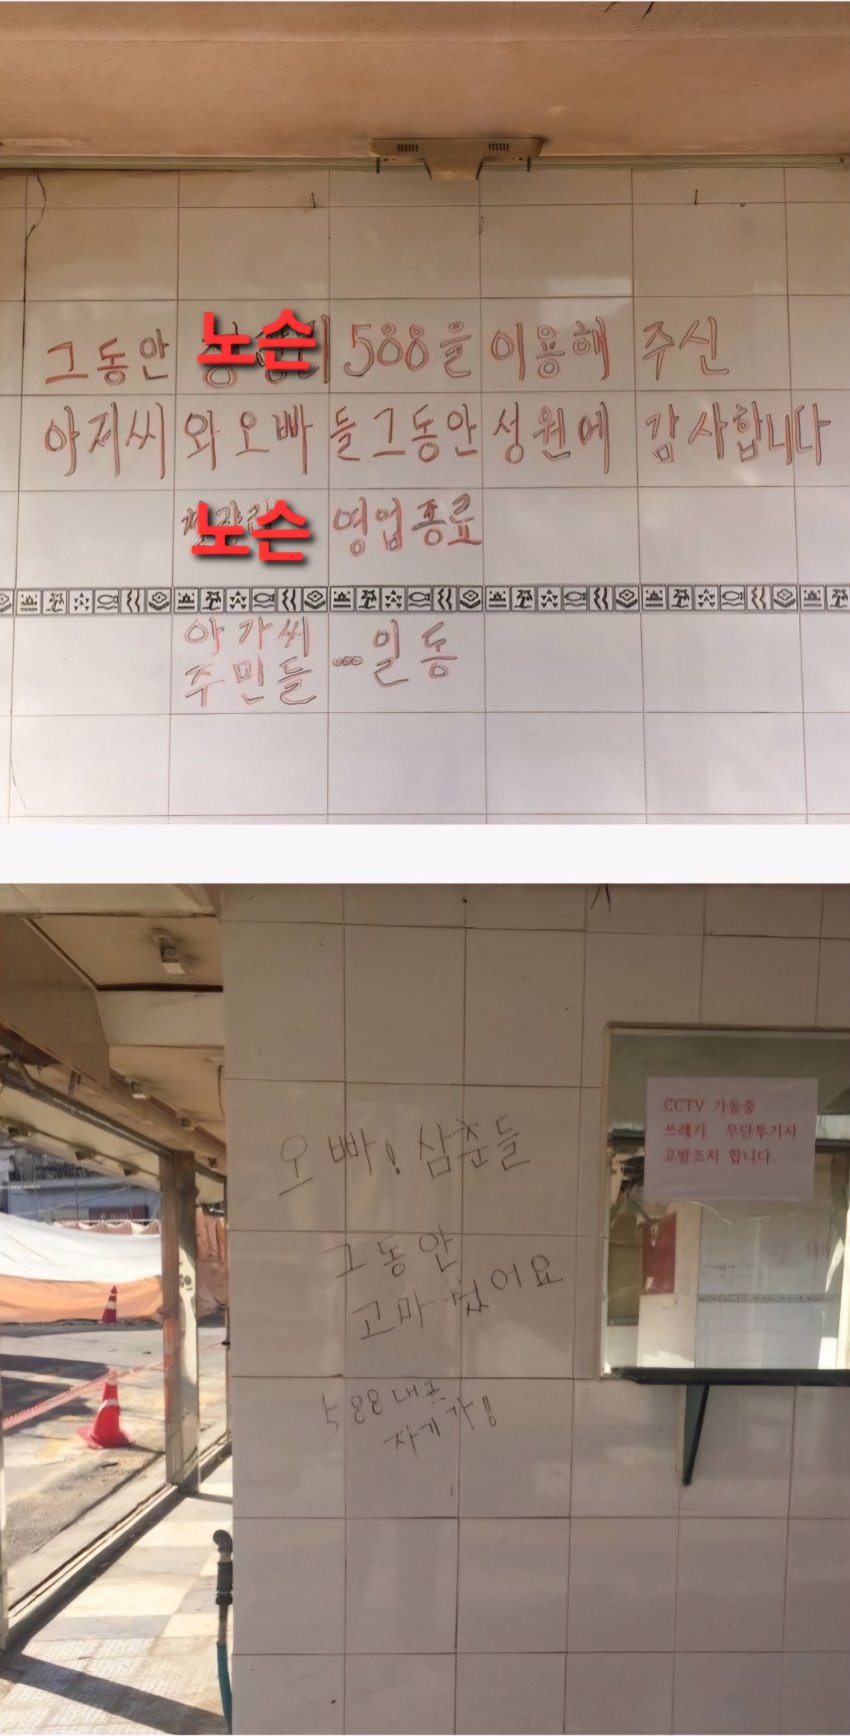 그동안 노슨 588을 이용해 주신
아저씨와 오빠들 그동안 성원에 감사합니다
노슨 영업종료
아가씨
주민들 ...일동
CCTV 가동중
쓰레기 무단투기시
고발조치 합니다.
오빠! 삼춘들
그동안
고마웠어요
588 대표
자기가!